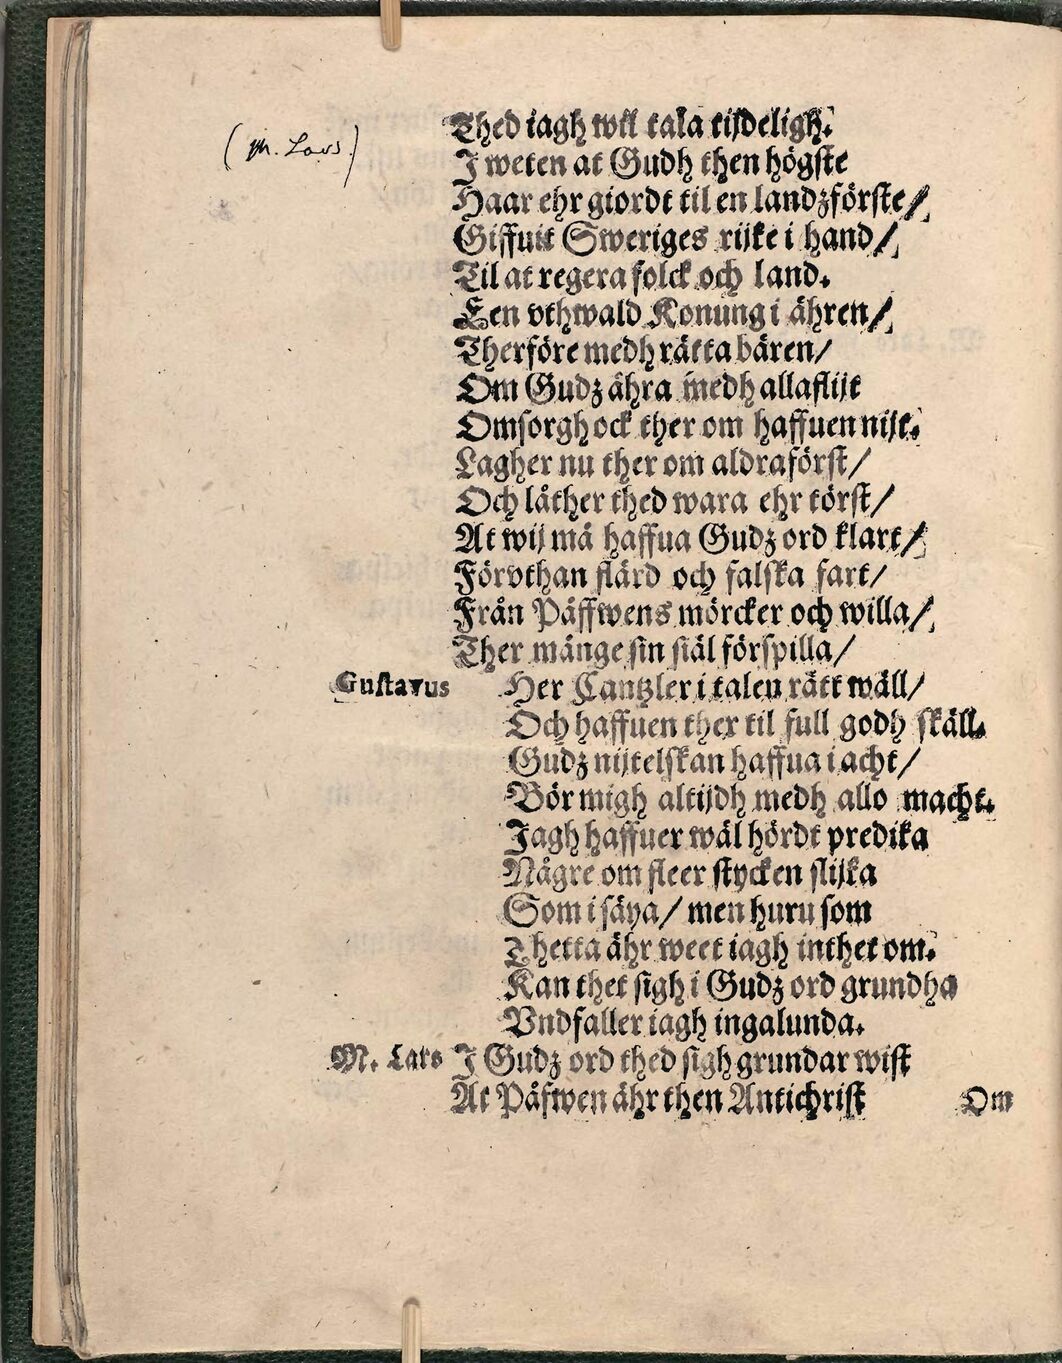 (M. Lars.)
Thed iagh will tala tijdeligh.
J weten at Gudh then högste
Haar ehr giordt til en landzförste/
Giffuit Sweriges rijke i hand/
Til at regera folck och land.
Een vthwald Konung i ähren/
Therföre medh rätta bären/
Om Gudz ähra medh alla flijt
Omsorgh ock ther om haffuen nijt.
Lagher nu ther om aldraförst/
Och låther thed wara ehr törst/
At wij må haffua Gudz ord klart/
Förvthan flärd och falska fart/
Från Påffwens mörcker och willa/
Ther månge sin siäl förspilla/
Gustavus Her Cantzler i talen rätt wäll/
Och haffuen ther til full godh skäll.
Gudz nijtelskan haffua i acht/
Bör migh altijdh medh allo macht.
Jagh haffuer wäl hördt predika
Någre om fleer stycken slijka
Som i säya/ men huru som
Thetta ähr weet iagh inthet om.
Kan thet sigh i Gudz ord grundha
Vndfaller iagh ingalunda.
M. Lars J Gudz ord thed sigh grundar wist
At Påfwen ähr then Antichrist
Om